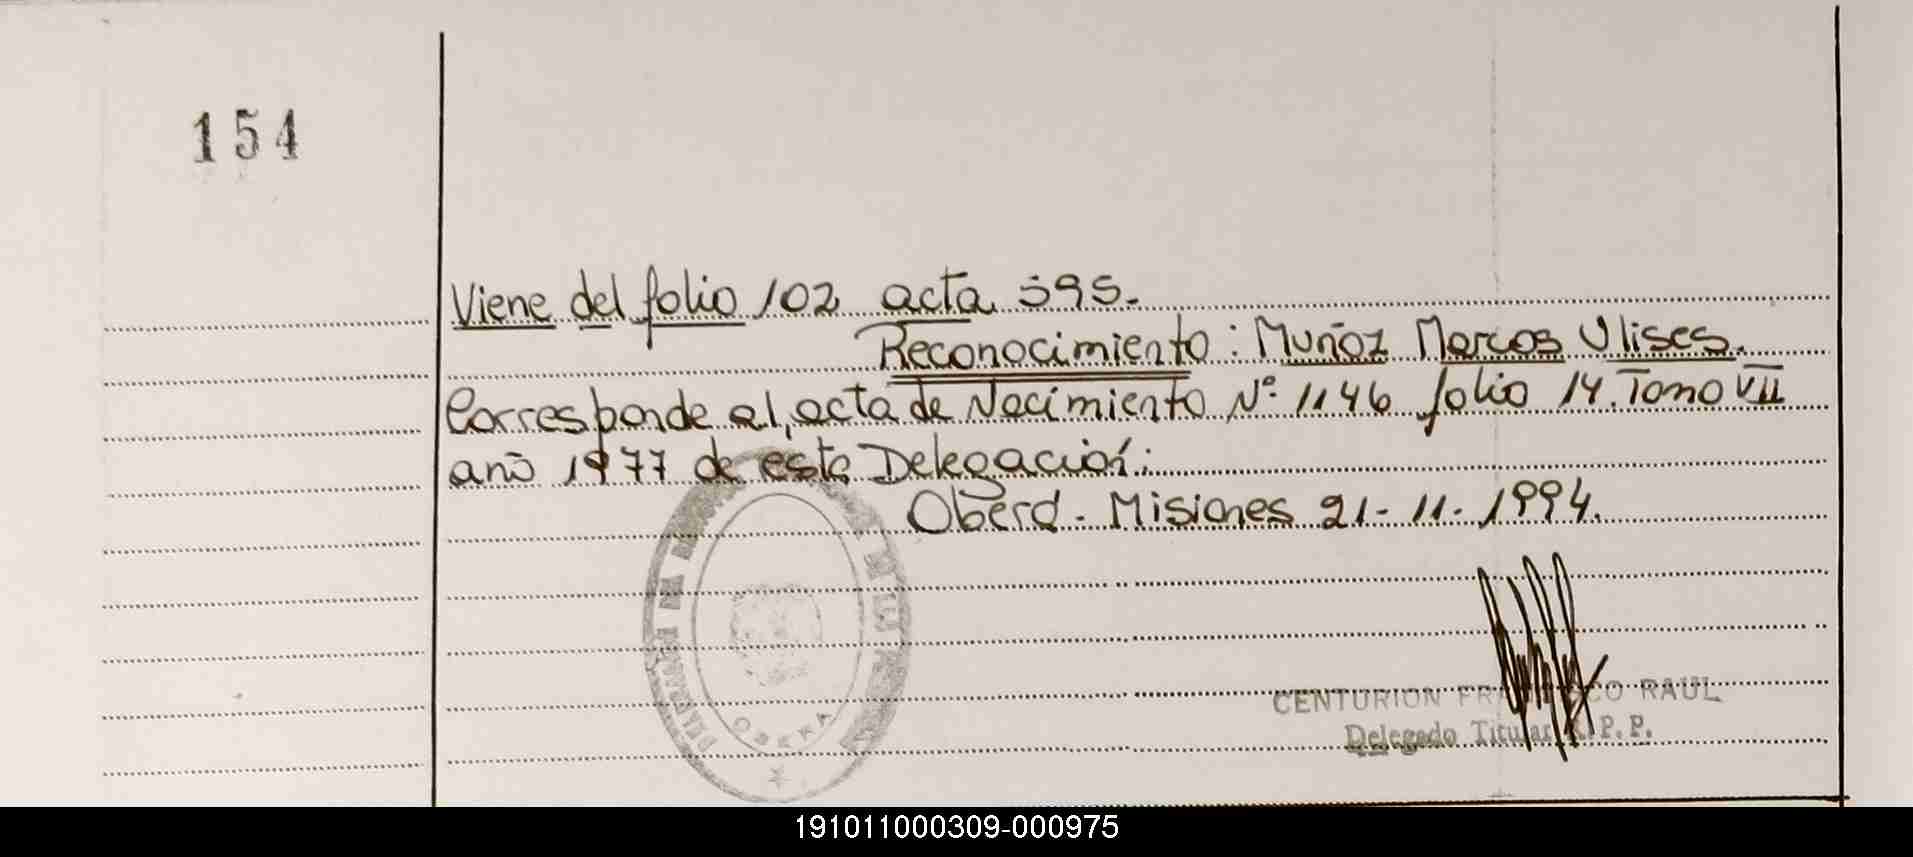 154
Viene del folio 102 acta 595.
Reconocimiento: Muñoz Marcos Ulises.
Corresponde al acta de Nacimiento Nº 1146 folio 14. Tomo VII
año 1977 de esta Delegación:
Oberá. Misiones 21-11-1994.
OBERA
CENTURION FRANCISCO RAUL
Delegado Titular R.P.P.
191011000309-000975